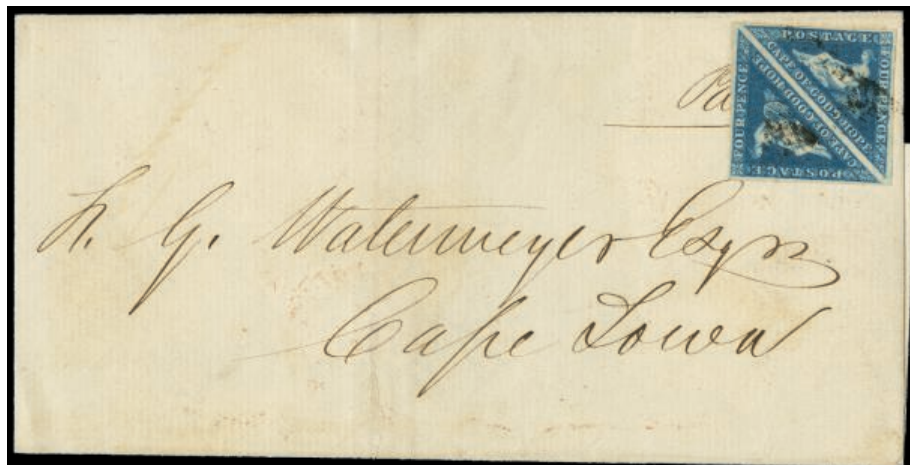 POSTAGE
FOUR PENCE
CAPE OF GOOD HOPE
CAPE OF GOOD HOPE
FOUR PENCE
POSTAGE
Pa
H. G. Watermeyer Esqr
Cape Town